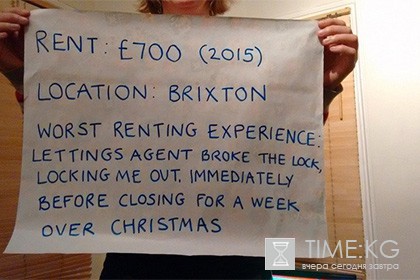 RENT: £700 (2015)
LOCATION: BRIXTON
WORST RENTING EXPERIENCE:
LETTINGS AGENT BROKE THE LOCK,
LOCKING ME OUT, IMMEDIATELY
BEFORE CLOSING FOR A WEEK
OVER CHRISTMAS
TIME.KG
вчера сегодня завтра